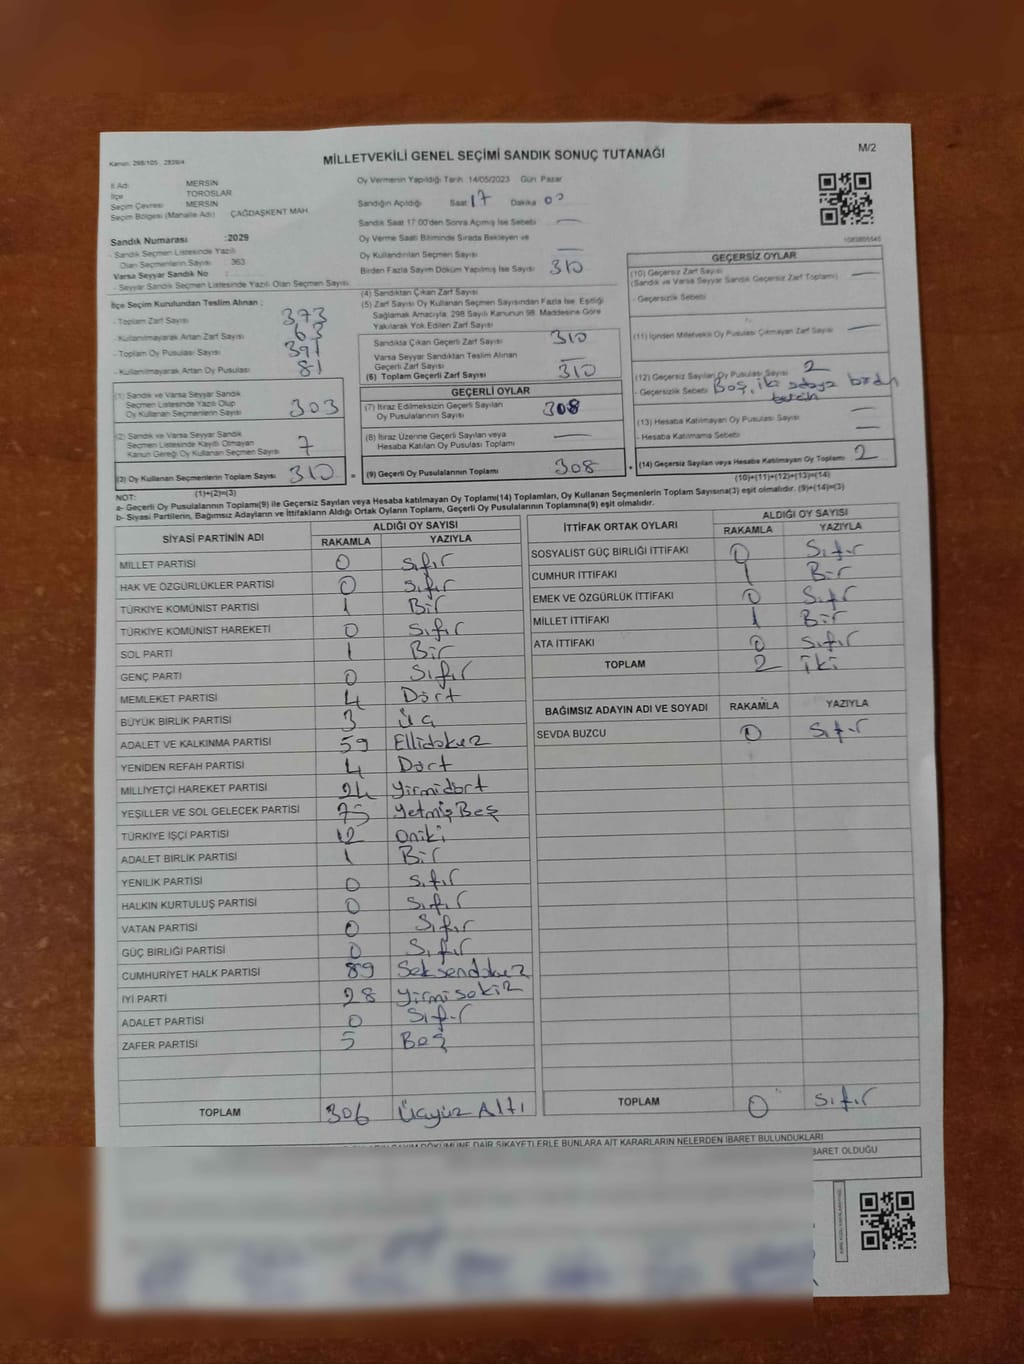 Kanun: 298/105 , 2839/4
MİLLETVEKİLİ GENEL SEÇİMİ SANDIK SONUÇ TUTANAĞI
M/2
İl Adı MERSİN
İlçe TOROSLAR
Seçim Çevresi MERSİN
Seçim Bölgesi (Mahalle Adı) ÇAĞDAŞKENT MAH.
Sandık Numarası :2029
- Sandık Seçmen Listesinde Yazılı
Olan Seçmenlerin Sayısı 363
Varsa Seyyar Sandık No :
- Seyyar Sandık Seçmen Listesinde Yazılı Olan Seçmen Sayısı
İlçe Seçim Kurulundan Teslim Alınan ;
- Toplam Zarf Sayısı 373
- Kullanılmayarak Artan Zarf Sayısı 63
- Toplam Oy Pusulası Sayısı 391
- Kullanılmayarak Artan Oy Pusulası 81
(1) Sandık ve Varsa Seyyar Sandık
Seçmen Listesinde Yazılı Olup
Oy Kullanan Seçmenlerin Sayısı 303
(2) Sandık ve Varsa Seyyar Sandık
Seçmen Listesinde Kayıtlı Olmayan
Kanun Gereği Oy Kullanan Seçmen Sayısı 7
(3) Oy Kullanan Seçmenlerin Toplam Sayısı 310
(1)+(2)=(3)
Oy Vermenin Yapıldığı Tarih 14/05/2023 Gün: Pazar
Sandığın Açıldığı Saat 17 Dakika 00
Sandık Saat 17:00'den Sonra Açılmış İse Sebebi —
Oy Verme Saati Bitiminde Sırada Bekleyen ve
Oy Kullandırılan Seçmen Sayısı —
Birden Fazla Sayım Döküm Yapılmış İse Sayısı 310
(4) Sandıktan Çıkan Zarf Sayısı
(5) Zarf Sayısı Oy Kullanan Seçmen Sayısından Fazla İse, Eşitliği
Sağlamak Amacıyla, 298 Sayılı Kanunun 98. Maddesine Göre
Yakılarak Yok Edilen Zarf Sayısı
Sandıkta Çıkan Geçerli Zarf Sayısı 310
Varsa Seyyar Sandıktan Teslim Alınan
Geçerli Zarf Sayısı —
(6) Toplam Geçerli Zarf Sayısı 310
GEÇERLİ OYLAR
(7) İtiraz Edilmeksizin Geçerli Sayılan
Oy Pusulalarının Sayısı 308
(8) İtiraz Üzerine Geçerli Sayılan veya
Hesaba Katılan Oy Pusulası Toplamı —
= (9) Geçerli Oy Pusulalarının Toplamı 308
1083805545
GEÇERSİZ OYLAR
(10) Geçersiz Zarf Sayısı
(Sandık ve Varsa Seyyar Sandık Geçersiz Zarf Toplamı) —
- Geçersizlik Sebebi
(11) İçinden Milletvekili Oy Pusulası Çıkmayan Zarf Sayısı —
(12) Geçersiz Sayılan Oy Pusulası Sayısı 2
- Geçersizlik Sebebi Boş, iki adaya birden
(13) Hesaba Katılmayan Oy Pusulası Sayısı —
- Hesaba Katılmama Sebebi —
+ (14) Geçersiz Sayılan veya Hesaba Katılmayan Oy Toplamı 2
(10)+(11)+(12)+(13)=(14)
NOT:
a- Geçerli Oy Pusulasının Toplamı(9) ile Geçersiz Sayılan veya Hesaba katılmayan Oy Toplamı(14) Toplamları, Oy Kullanan Seçmenlerin Toplam Sayısına(3) eşit olmalıdır. (9)+(14)=(3)
b- Siyasi Partilerin, Bağımsız Adayların ve İttifakların Aldığı Ortak Oyların Toplamı, Geçerli Oy Pusulasının Toplamına(9) eşit olmalıdır.
SİYASİ PARTİNİN ADI ALDIĞI OY SAYISI
RAKAMLA YAZIYLA
MİLLET PARTİSİ 0 Sıfır
HAK VE ÖZGÜRLÜKLER PARTİSİ 0 Sıfır
TÜRKİYE KOMÜNİST PARTİSİ 1 Bir
TÜRKİYE KOMÜNİST HAREKETİ 0 Sıfır
SOL PARTİ 1 Bir
GENÇ PARTİ 0 Sıfır
MEMLEKET PARTİSİ 4 Dört
BÜYÜK BİRLİK PARTİSİ 3 Üç
ADALET VE KALKINMA PARTİSİ 59 Ellidokuz
YENİDEN REFAH PARTİSİ 4 Dört
MİLLİYETÇİ HAREKET PARTİSİ 24 Yirmidört
YEŞİLLER VE SOL GELECEK PARTİSİ 75 YetmişBeş
TÜRKİYE İŞÇİ PARTİSİ 12 Oniki
ADALET BİRLİK PARTİSİ 1 Bir
YENİLİK PARTİSİ 0 Sıfır
HALKIN KURTULUŞ PARTİSİ 0 Sıfır
VATAN PARTİSİ 0 Sıfır
GÜÇ BİRLİĞİ PARTİSİ 0 Sıfır
CUMHURİYET HALK PARTİSİ 89 Seksendokuz
İYİ PARTİ 28 Yirmisekiz
ADALET PARTİSİ 0 Sıfır
ZAFER PARTİSİ 5 Beş
TOPLAM 306 Üçyüz Altı
İTTİFAK ORTAK OYLARI ALDIĞI OY SAYISI
RAKAMLA YAZIYLA
SOSYALİST GÜÇ BİRLİĞİ İTTİFAKI 0 Sıfır
CUMHUR İTTİFAKI 1 Bir
EMEK VE ÖZGÜRLÜK İTTİFAKI 0 Sıfır
MİLLET İTTİFAKI 1 Bir
ATA İTTİFAKI 0 Sıfır
TOPLAM 2 İki
BAĞIMSIZ ADAYIN ADI VE SOYADI RAKAMLA YAZIYLA
SEVDA BUZCU 0 Sıfır
TOPLAM 0 Sıfır
SAYIM DÖKÜMÜNE DAİR ŞİKAYETLERLE BUNLARA AİT KARARLARIN NELERDEN İBARET BULUNDUKLARI
BARET OLDUĞU